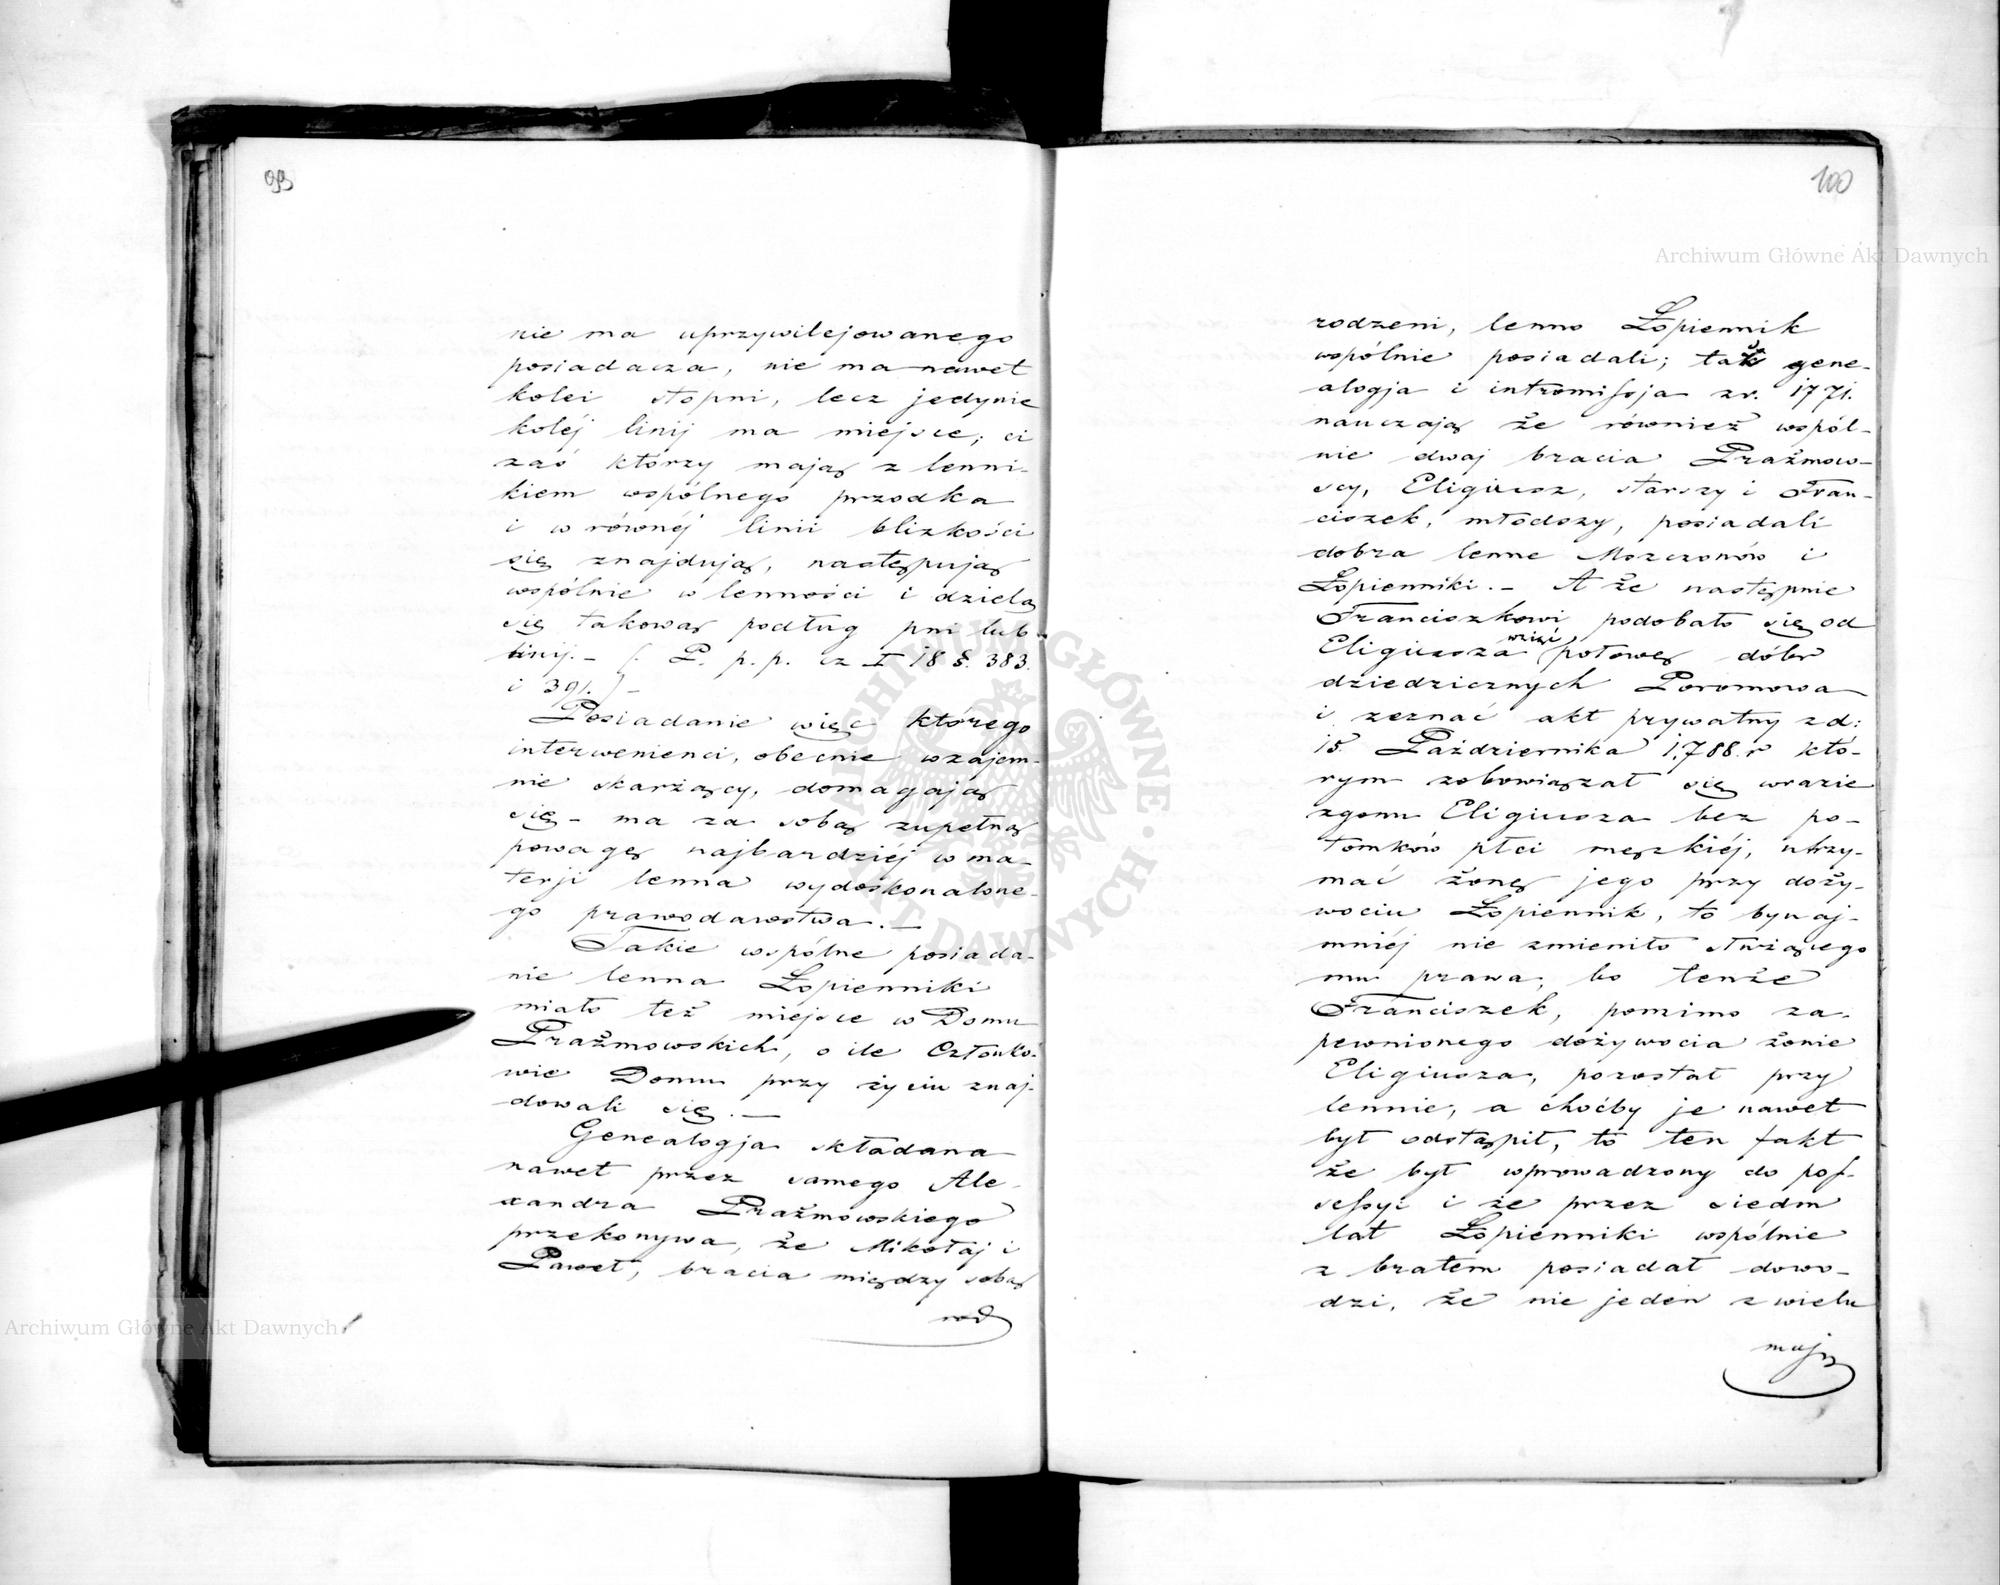 99
nie ma uprzywilejowanego
posiadacza, nie ma nawet
kolei stopni, lecz jedynie
koléj linij ma miejsce; ci
zaś którzy mają z lenni-
kiem wspólnego przodka
i w równéj linii blizkości
się znajdują, następują
wspólnie w lenności i dzielą
się takową podług pni lub
linij. – (. P. p. p. cz I 18 §. 383.
i 391.) –
Posiadanie więc którego
interwenienci, obecnie wzajem-
nie skarżący, domagają
się – ma za sobą zupełną
powagę najbardziéj w ma-
terji lenna wydoskonalone-
go prawodawstwa. –
Takie wspólne posiada-
nie lenna Łopienniki
miało też miejsce w Domu
Prażmowskich, o ile Członko-
wie Domu przy życiu znaj-
dowali się. –
Genealogja składana
nawet przez samego Ale-
xandra Prażmowskiego
przekonywa, że Mikołaj i
Paweł, bracia między sobą
rod
100
rodzeni, lenno Łopiennik
wspólnie posiadali; tak gene-
alogja i intromissja z r. 1771.
nauczają że również wspól-
nie dwaj bracia Prażmow-
scy, Eligiusz, starszy i Fran-
ciszek, młodszy, posiadali
dobra lenne Mszczonów i
Łopienniki. – A że następnie
Franciszkowi podobało się od
Eligiusza wziąć połowę dóbr
dziedzicznych Poromowa
i zeznać akt prywatny z d:
15 Października 1788. r któ-
rym zobowiązał się w razie
zgonu Eligiusza bez po-
tomków płci męzkiéj, utrzy-
mać żonę jego przy doży-
wociu Łopiennik, to bynaj-
mniéj nie zmieniło służącego
mu prawa, bo tenże
Franciszek, pomimo za-
pewnionego dożywocia żonie
Eligiusza, pozostał przy
lennie, a choćby je nawet
był odstąpił, to ten fakt
że był wprowadzony do pos-
sessyi i że przez siedm
lat Łopienniki wspólnie
z bratem posiadał dowo-
dzi, że nie jeden z wielu
mają
Archiwum Główne Akt Dawnych
Archiwum Główne Akt Dawnych
ARCHIWUM GŁÓWNE AKT DAWNYCH